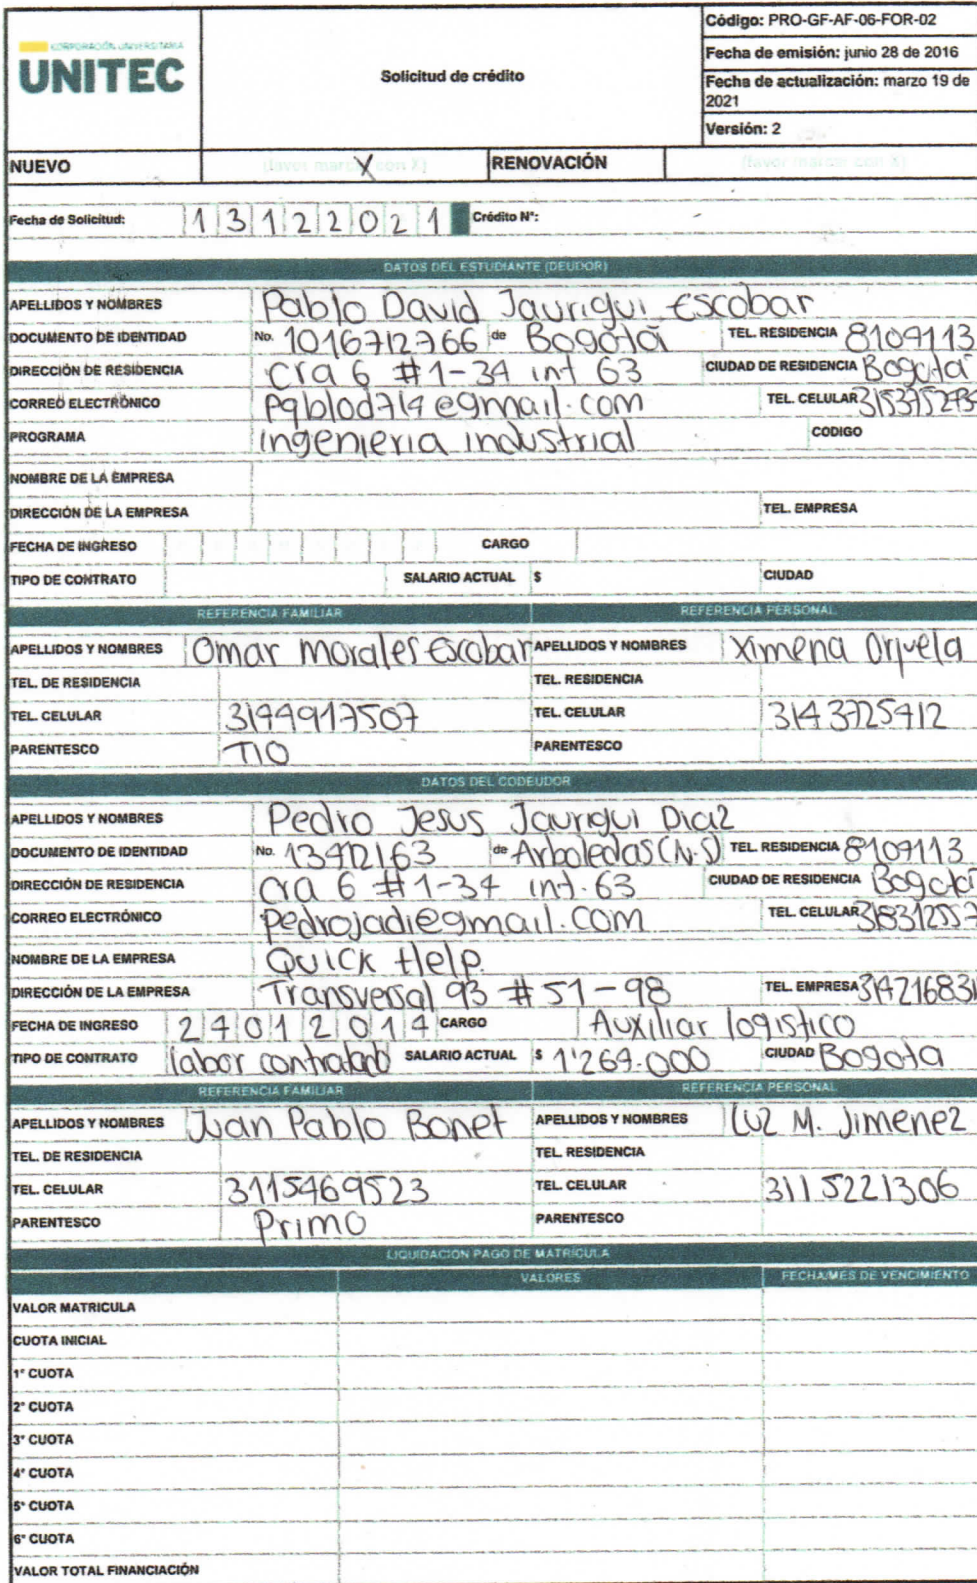 CORPORACIÓN UNIVERSITARIA
UNITEC
Solicitud de crédito
Código: PRO-GF-AF-06-FOR-02
Fecha de emisión: junio 28 de 2016
Fecha de actualización: marzo 19 de 2021
Versión: 2
NUEVO (favor marcar con X) X RENOVACIÓN (favor marcar con X)
Fecha de Solicitud: 13122021 Crédito N°:
DATOS DEL ESTUDIANTE (DEUDOR)
APELLIDOS Y NOMBRES Pablo David Jaurigui Escobar
DOCUMENTO DE IDENTIDAD No. 1016712766 de Bogotá TEL. RESIDENCIA 8109113
DIRECCIÓN DE RESIDENCIA Cra 6 #1-34 int 63 CIUDAD DE RESIDENCIA Bogotá
CORREO ELECTRÓNICO Pablod714@gmail.com TEL. CELULAR
PROGRAMA ingenieria industrial CODIGO
NOMBRE DE LA EMPRESA
DIRECCIÓN DE LA EMPRESA TEL. EMPRESA
FECHA DE INGRESO CARGO
TIPO DE CONTRATO SALARIO ACTUAL $ CIUDAD
REFERENCIA FAMILIAR REFERENCIA PERSONAL
APELLIDOS Y NOMBRES Omar morales Escobar APELLIDOS Y NOMBRES Ximena Orjuela
TEL. DE RESIDENCIA TEL. RESIDENCIA
TEL. CELULAR TEL. CELULAR
PARENTESCO TIO PARENTESCO
DATOS DEL CODEUDOR
APELLIDOS Y NOMBRES Pedro Jesus Jaurigui Diaz
DOCUMENTO DE IDENTIDAD No. 13412163 de Arboledas (N.S) TEL. RESIDENCIA 8109113
DIRECCIÓN DE RESIDENCIA Cra 6 #1-34 int. 63 CIUDAD DE RESIDENCIA Bogotá
CORREO ELECTRÓNICO pedrojadi@gmail.com TEL. CELULAR
NOMBRE DE LA EMPRESA Quick Help.
DIRECCIÓN DE LA EMPRESA Transversal 93 # 51-98 TEL. EMPRESA
FECHA DE INGRESO 24012014 CARGO Auxiliar logistico
TIPO DE CONTRATO labor contratado SALARIO ACTUAL $ 1'269.000 CIUDAD Bogota
REFERENCIA FAMILIAR REFERENCIA PERSONAL
APELLIDOS Y NOMBRES Juan Pablo Bonet APELLIDOS Y NOMBRES Luz M. Jimenez
TEL. DE RESIDENCIA TEL. RESIDENCIA
TEL. CELULAR 3115469523 TEL. CELULAR 3115221306
PARENTESCO Primo PARENTESCO
LIQUIDACION PAGO DE MATRÍCULA
VALORES FECHA/MES DE VENCIMIENTO
VALOR MATRICULA
CUOTA INICIAL
1° CUOTA
2° CUOTA
3° CUOTA
4° CUOTA
5° CUOTA
6° CUOTA
VALOR TOTAL FINANCIACIÓN